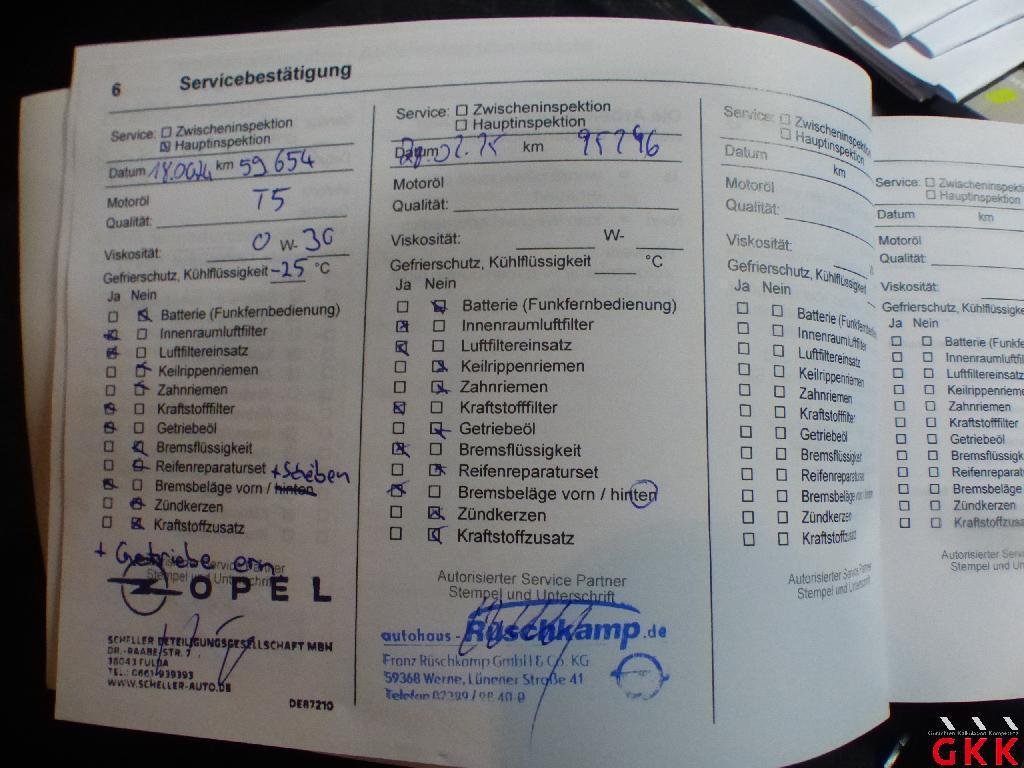 6 Servicebestätigung
Service: Zwischeninspektion
Hauptinspektion
Datum km 59 654
Motoröl T5
Qualität:
Viskosität: 0 W- 30
Gefrierschutz, Kühlflüssigkeit -25 °C
Ja Nein
Batterie (Funkfernbedienung)
Innenraumluftfilter
Luftfiltereinsatz
Keilrippenriemen
Zahnriemen
Kraftstofffilter
Getriebeöl
Bremsflüssigkeit
Reifenreparaturset + Scheiben
Bremsbeläge vorn / hinten
Zündkerzen
Kraftstoffzusatz
+ Getriebe
OPEL
SCHELLER BETEILIGUNGSGESELLSCHAFT MBH
DR.-RAABE-STR. 7
36043 FULDA
TEL.: 0661-939393
WWW.SCHELLER-AUTO.DE
DE87210
Service: Zwischeninspektion
Hauptinspektion
Datum 02.25 km 95296
Motoröl
Qualität:
Viskosität: W-
Gefrierschutz, Kühlflüssigkeit °C
Ja Nein
Batterie (Funkfernbedienung)
Innenraumluftfilter
Luftfiltereinsatz
Keilrippenriemen
Zahnriemen
Kraftstofffilter
Getriebeöl
Bremsflüssigkeit
Reifenreparaturset
Bremsbeläge vorn / hinten
Zündkerzen
Kraftstoffzusatz
Autorisierter Service Partner
Stempel und Unterschrift
autohaus - Rüschkamp.de
Franz Rüschkamp GmbH & Co. KG
59368 Werne, Lünener Straße 41
Telefon
Service: Zwischeninspektion
Hauptinspektion
Datum km
Motoröl
Qualität:
Viskosität:
Gefrierschutz, Kühlflüssigkeit
Ja Nein
Batterie (Funkfernbe
Innenraumluftfilter
Luftfiltereinsatz
Keilrippenriemen
Zahnriemen
Kraftstofffilter
Getriebeöl
Bremsflüssigkeit
Reifenreparaturset
Bremsbeläge vorn / hinten
Zündkerzen
Kraftstoffzusatz
Autorisierter Service Par
Stempel und Unterschrift
Service: Zwischeninspekti
Hauptinspektion
Datum km
Motoröl
Qualität:
Viskosität:
Gefrierschutz, Kühlflüssigke
Ja Nein
Batterie (Funkfe
Innenraumluftfilter
Luftfiltereinsatz
Keilrippenrieme
Zahnriemen
Kraftstofffilter
Getriebeöl
Bremsflüssigkei
Reifenreparatu
Bremsbeläge vo
Zündkerzen
Kraftstoffzusa
Autorisierter Servic
Stempel und Unte
Gutachten Kalkulation Kompetenz
GKK